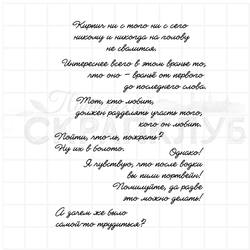 Кирпич ни с того ни с сего
никому и никогда на голову
не свалится.
Интереснее всего в этом вранье то,
что оно - враньё от первого
до последнего слова.
Тот, кто любит,
должен разделять участь того,
кого он любит.
Пойти, что-ль, пожрать?
Ну их в болото.
Однако!
Я чувствую, что после водки
вы пили портвейн!
Помилуйте, да разве
это можно делать!
А зачем же было
самой-то трудиться?